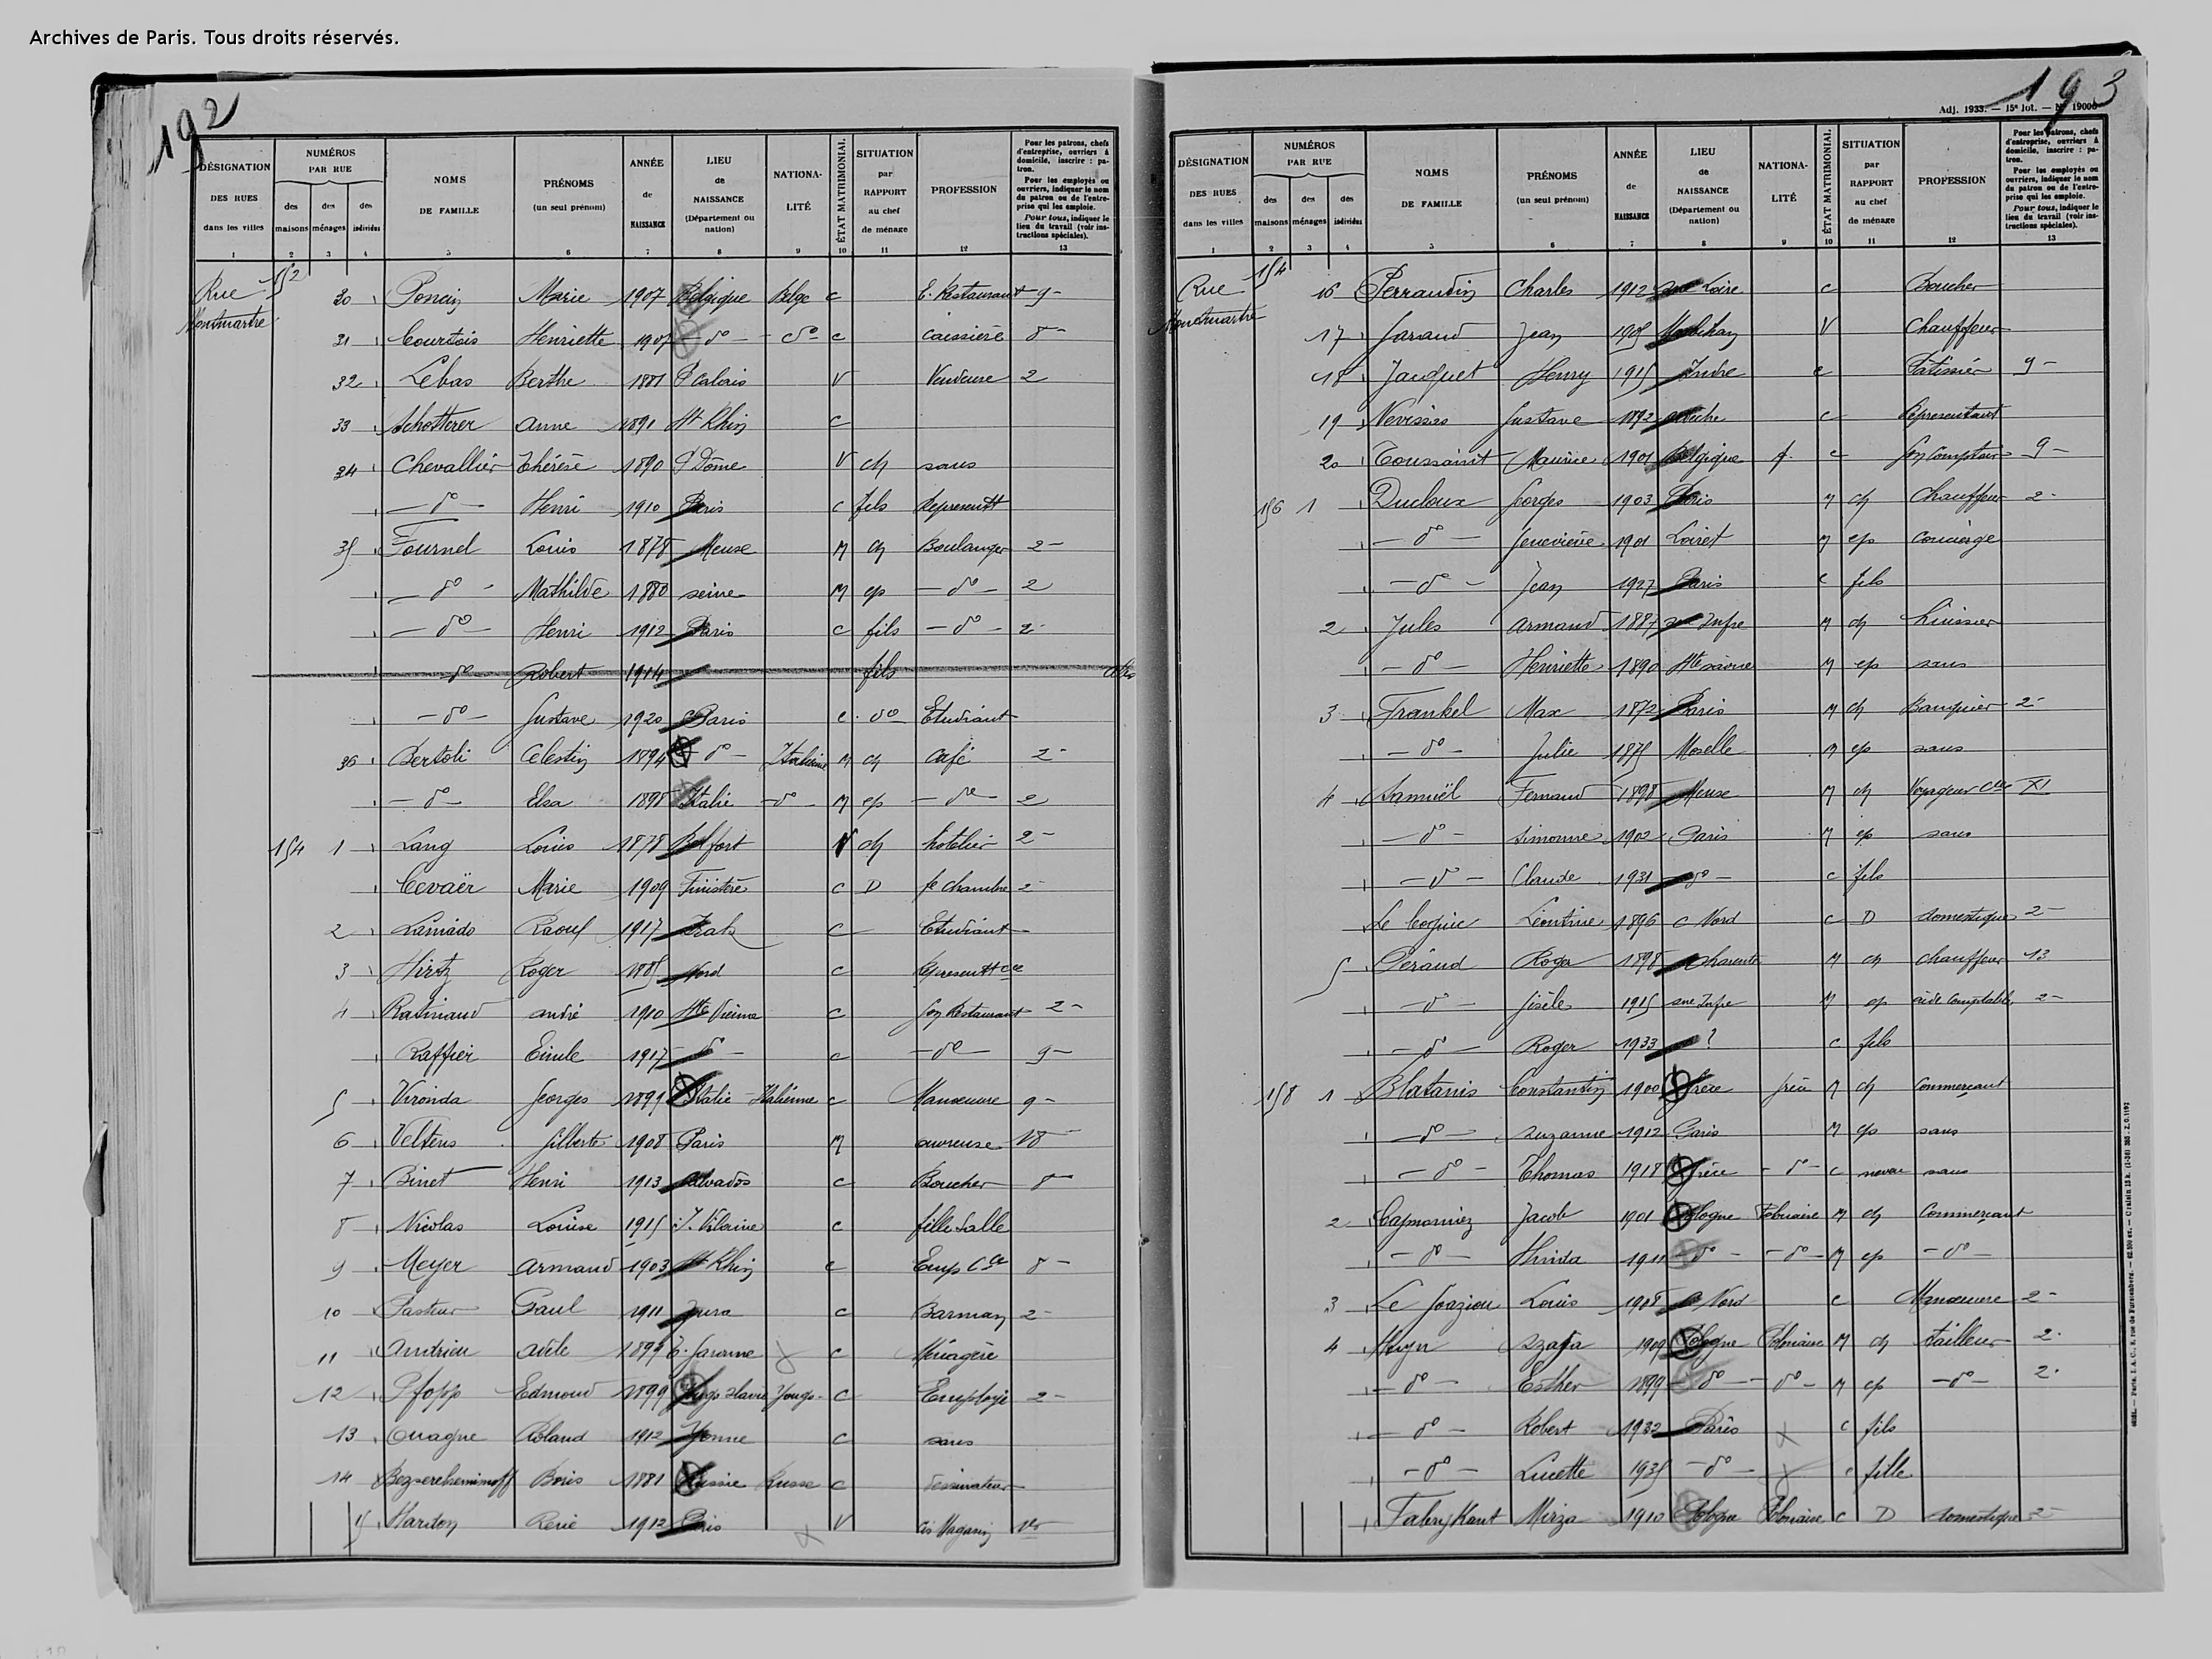 Archives de Paris. Tous droits réservés.
192
DÉSIGNATION DES RUES dans les villes
NUMÉROS PAR RUE
des maisons des ménages des individus
NOMS DE FAMILLE
PRÉNOMS (un seul prénom)
ANNÉE de NAISSANCE
LIEU de NAISSANCE (Département ou nation)
NATIONALITÉ
ÉTAT MATRIMONIAL
SITUATION par RAPPORT au chef de ménage
PROFESSION
Pour les patrons, chefs d'entreprise, ouvriers à domicile, inscrire : patron.
Pour les employés ou ouvriers, indiquer le nom du patron ou de l'entreprise qui les emploie.
Pour tous, indiquer le lieu du travail (voir instructions spéciales).
1 2 3 4 5 6 7 8 9 10 11 12 13
Rue Montmartre
152 30 Poncin Marie 1907 Belgique Belge c E. Restaurant 9
31 Courtois Henriette 1907 - do - - do c caissière 8
32 Lebas Berthe 1881 P Calais V Vendeuse 2
33 Schotterer Anne 1891 Ht Rhin c
34 Chevallier Thérèse 1890 P Dôme V ch sans
- do - Henri 1910 Paris c fils Represent
35 Fournel Louis 1878 Meuse M ch Boulanger 2
- do - Mathilde 1880 seine M ep - do - 2
- do - Henri 1912 Paris c fils - do - 2
do Robert 1914 fils
- do - Gustave 1920 Paris c do Etudiant
36 Bertoli Celestin 1894 do - Italienne M ch Café 2
- do - Elsa 1898 Italie - do - M ep - do - 2
154 1 Lang Louis 1878 Belfort V ch hotelier 2
Cevaër Marie 1909 Finistère c D fe chambre 2
2 Laniado Raoul 1917 Irak c Etudiant
3 Hirtz Roger 1885 Nord c Represent cce
4 Ratinaud andré 1910 Hte Vienne c gn Restaurant 2
Raffier Emile 1917 - do - c - do - 9
5 Vironda Georges 1899 Italie Italienne c Manœuvre 9
6 Veltens Gilberte 1908 Paris M ouvreuse 18
7 Binet Henri 1913 Calvados c Boucher 8
8 Nicolas Louise 1915 I. Vilaine c fille Salle
9 Meyer Armand 1903 Ht Rhin c Emp Cce 8
10 Pasteur Paul 1911 Jura c Barman 2
11 Andrieu Adèle T. Garonne c Ménagère
12 Pfopp Edmond 1899 Yougo slavie Yougo. c Employé 2
13 Ouagne Roland 1912 Yonne c sans
14 Boris 1881 Russie Russe c dessinateur
15 Hardon René 1912 Paris V Magasin
193
Adj. 1933. — 15e lot. — N° 19006
DÉSIGNATION DES RUES dans les villes
NUMÉROS PAR RUE
des maisons des ménages des individus
NOMS DE FAMILLE
PRÉNOMS (un seul prénom)
ANNÉE de NAISSANCE
LIEU de NAISSANCE (Département ou nation)
NATIONALITÉ
ÉTAT MATRIMONIAL
SITUATION par RAPPORT au chef de ménage
PROFESSION
Pour les patrons, chefs d'entreprise, ouvriers à domicile, inscrire : patron.
Pour les employés ou ouvriers, indiquer le nom du patron ou de l'entreprise qui les emploie.
Pour tous, indiquer le lieu du travail (voir instructions spéciales).
1 2 3 4 5 6 7 8 9 10 11 12 13
Rue Montmartre
154 16 Perraudin Charles 1912 Loire c Boucher
17 Garaud Jean 1905 Morbihan V Chauffeur
18 Jacquet Henry 1915 Indre c Patissier 9
19 Gustave 1892 c Representant
20 Toussaint Maurice 1901 Belgique f. c gn Comptoir 9
156 1 Ducloux Georges 1903 Paris M ch Chauffeur 2
- do - Geneviève 1901 Loiret M ep Concierge
- do - Jean 1927 Paris c fils
2 Jules Armand 1887 sne Infre M ch huissier
- do - Henriette 1890 Hte saône M ep sans
3 Frankel Max 1872 Paris M ch Banquier 2
- do - Julie 1875 Moselle M ep sans
4 Samuël Fernand 1898 Meuse M ch Voyageur Cce XI
- do - simonne 1902 Paris M ep sans
- do - Claude 1931 - do - c fils
Le Coguic Léontine 1896 C Nord c D domestique 2
5 Pérand Roger 1898 Charente M ch chauffeur 13
- do - Gisèle 1915 sne Infre M ep aide Comptable 2
- do - Roger 1933 ? c fils
158 1 Blatanis Constantin 1900 Grèce grèce M ch Commerçant
- do - suzanne 1912 Paris M ep sans
- do - Thomas 1918 Grèce - do - c neveu sans
2 Jacob 1901 Pologne Polonaise M ch Commerçant
- do - Hinda 1911 - do - - do - M ep - do -
3 Le Goaziou Louis 1908 C Nord c Manœuvre 2
4 Szafa 1909 Pologne Polonaise M ch tailleur 2
- do - Esther 1899 - do - - do - M ep - do - 2
- do - Robert 1932 Paris c fils
- do - Lucette 1935 - do - c fille
Mirza 1910 Pologne Polonaise c D domestique 2